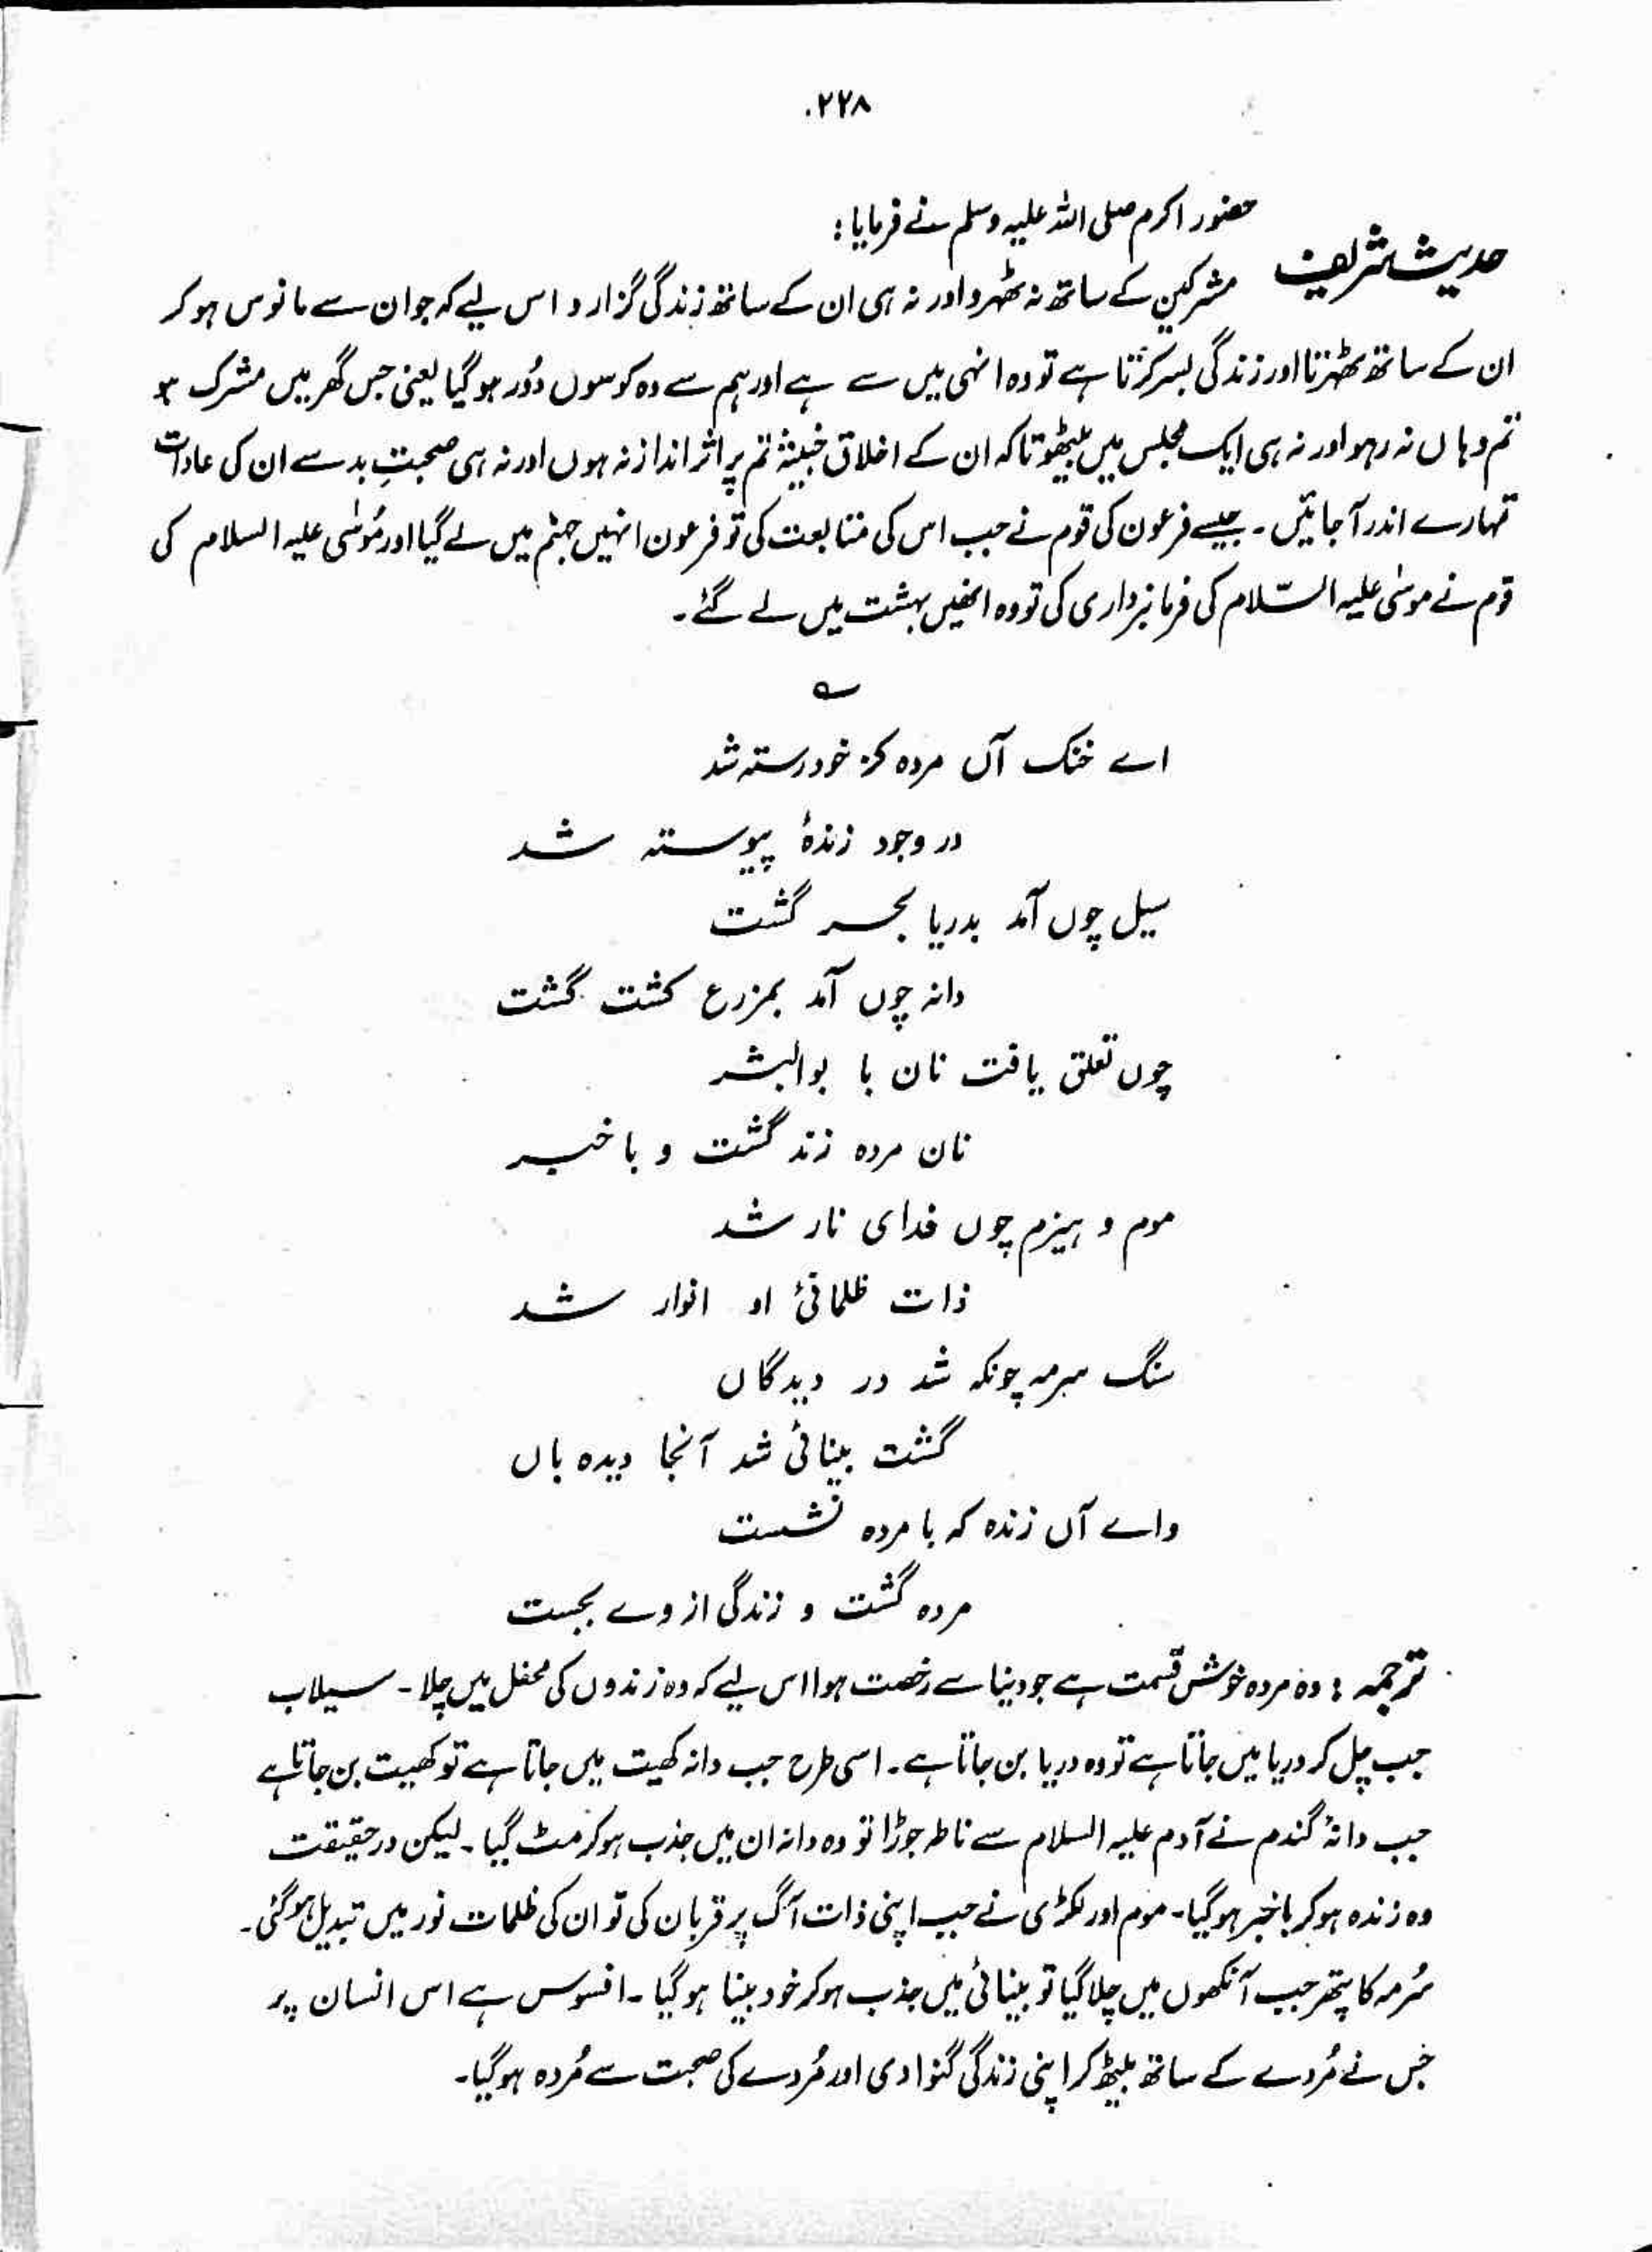 ۲۲۸
حضور اکرم صلی اللہ علیہ وسلم نے فرمایا :
حدیث شریف مشرکین کے ساتھ نہ ٹھہرو اور نہ ہی ان کے ساتھ زندگی گزارو اس لیے کہ جو ان سے مانوس ہو کر
ان کے ساتھ ٹھہرتا اور زندگی بسر کرتا ہے تو وہ انہی میں سے ہے اور ہم سے وہ کوسوں دُور ہو گیا یعنی جس گھر میں مشرک ہو
تم وہاں نہ رہو اور نہ ہی ایک مجلس میں بیٹھو تاکہ ان کے اخلاق خبیثہ تم پر اثر انداز نہ ہوں اور نہ ہی صحبتِ بد سے ان کی عادات
تمہارے اندر آ جائیں ۔ جیسے فرعون کی قوم نے جب اس کی متابعت کی تو فرعون انہیں جہنم میں لے گیا اور مُوسٰی علیہ السلام کی
قوم نے موسٰی علیہ السّلام کی فرمانبرداری کی تو وہ انھیں بہشت میں لے گئے ۔
؎
اے خنک آں مردہ کز خود رستہ شد
در وجود زندۂ پیوستہ شد
سیل چوں آمد بدریا بحر گشت
دانہ چوں آمد بمزرع کشت گشت
چوں تعلق یافت نان با بوالبشر
نان مردہ زند گشت و با خبر
موم و ہیزم چوں فدای نار شد
ذات ظلمانیٔ او انوار شد
سنگ سرمہ چونکہ شد در دیدگاں
گشت بینائی شد آنجا دیدہ باں
واے آں زندہ کہ با مردہ نشست
مردہ گشت و زندگی از وے بجست
ترجمہ : وہ مردہ خوش قسمت ہے جو دنیا سے رخصت ہوا اس لیے کہ وہ زندوں کی محفل میں چلا ۔ سیلاب
جب چل کر دریا میں جاتا ہے تو وہ دریا بن جاتا ہے ۔ اسی طرح جب دانہ کھیت میں جاتا ہے تو کھیت بن جاتا ہے
جب دانۂ گندم نے آدم علیہ السلام سے ناطہ جوڑا تو وہ دانہ ان میں جذب ہو کر مٹ گیا ۔ لیکن درحقیقت
وہ زندہ ہو کر باخبر ہو گیا ۔ موم اور لکڑی نے جب اپنی ذات آگ پر قربان کی تو ان کی ظلمات نور میں تبدیل ہو گئی ۔
سُرمہ کا پتھر جب آنکھوں میں چلا گیا تو بینائی میں جذب ہو کر خود بینا ہو گیا ۔ افسوس ہے اس انسان پر
جس نے مُردے کے ساتھ بیٹھ کر اپنی زندگی گنوا دی اور مُردے کی صحبت سے مُردہ ہو گیا ۔